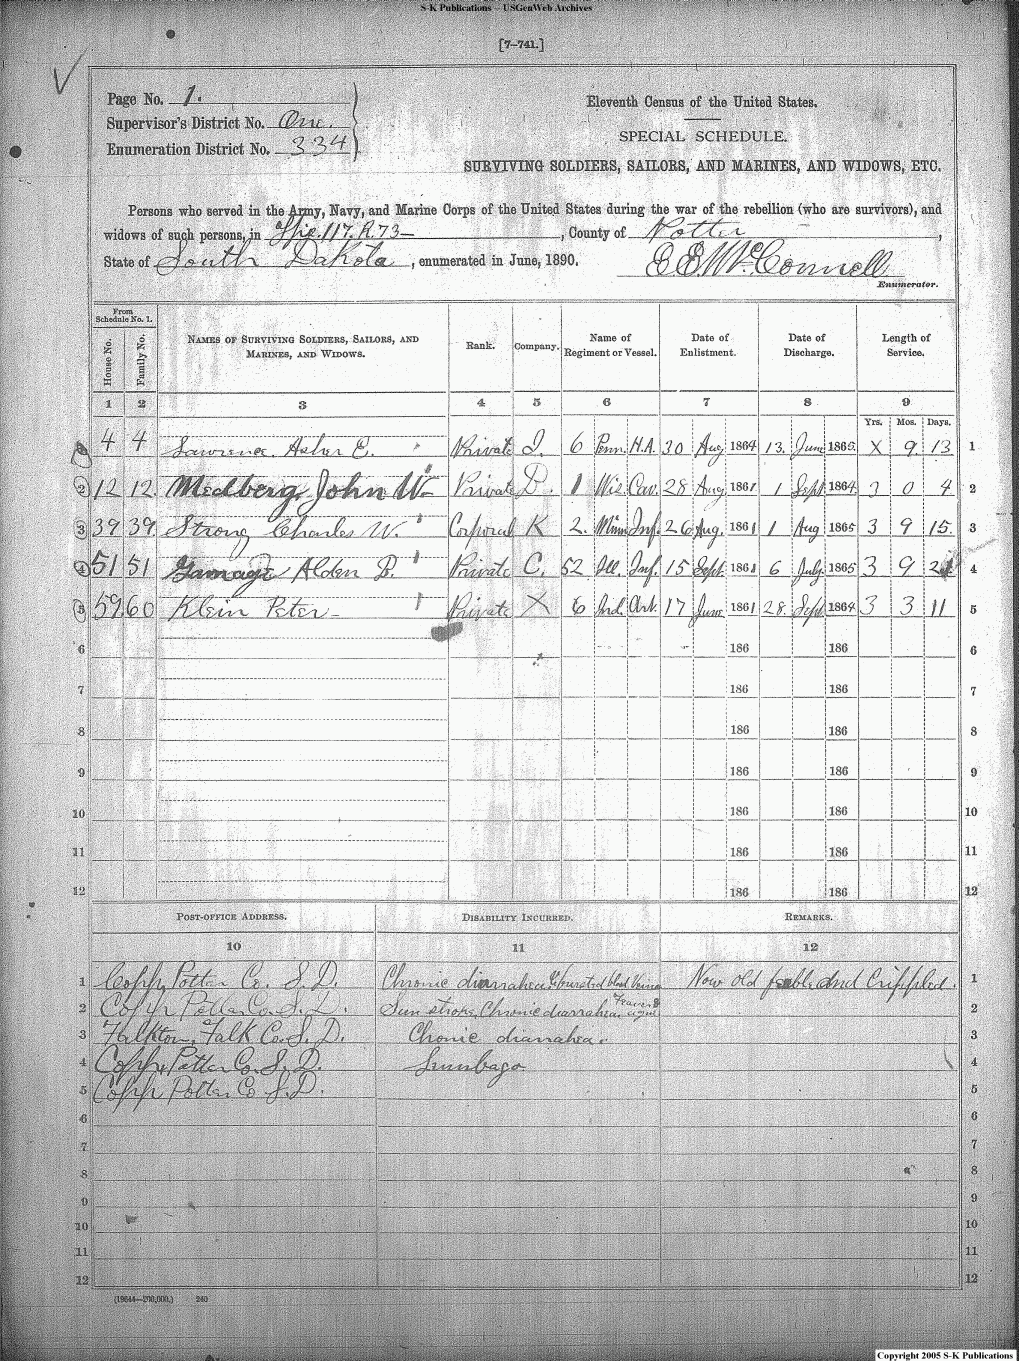 S-K Publications -- USGenWeb Archives
[7-741.]
Page No. 1.
Supervisor's District No. One.
Enumeration District No. 334
Eleventh Census of the United States.
SPECIAL SCHEDULE.
SURVIVING SOLDIERS, SAILORS, AND MARINES, AND WIDOWS, ETC.
Persons who served in the Army, Navy, and Marine Corps of the United States during the war of the rebellion (who are survivors), and
widows of such persons, in 117. R. 73, County of Potter,
State of South Dakota, enumerated in June, 1890. E E McConnell
Enumerator.
From Schedule No. 1.
House No. Family No. Names of Surviving Soldiers, Sailors, and Marines, and Widows. Rank. Company. Name of Regiment or Vessel. Date of Enlistment. Date of Discharge. Length of Service.
1 2 3 4 5 6 7 8 9
Yrs. Mos. Days.
4 4 Lawrence Asher E. Private I. 6 Penn. H.A. 30 Aug 1864 13. June 1865. X 9 13 1
2 12 12. Medberg, John W. Private D. 1 Wis. Cav. 28 Aug 1861 1 Sept 1864. 3 0 4 2
3 39 39. Strong Charles W. Corporal K 2. Minn Inf. 26 Aug. 1861 1 Aug 1865 3 9 15. 3
4 51 51 Gamage Alden B. Private C. 52 Ill. Inf. 15 Sept. 1861 6 July 1865 3 9 21 4
5 59. 60 Klein Peter Private X 6 Ind. Art. 17 June 1861 28. Sept 1864. 3 3 11 5
6 186 186 6
7 186 186 7
8 186 186 8
9 186 186 9
10 186 186 10
11 186 186 11
12 186 186 12
Post-office Address. Disability Incurred. Remarks.
10 11 12
1 Copp, Potter Co. S. D. Chronic diarrahea & bursted blood Veins Now old feeble and Crippled. 1
2 Copp Potter Co. S. D. Sun stroke, Chronic diarrahea, Feaver & ague 2
3 Falkton, Falk Co. S. D. Chonic diarrahea. 3
4 Copp, Potter Co. S. D. Lumbago 4
5 Copp Potter Co S. D. 5
6 6
7 7
8 8
9 9
10 10
11 11
12 12
(18644—200,000.) 240
Copyright 2005 S-K Publications